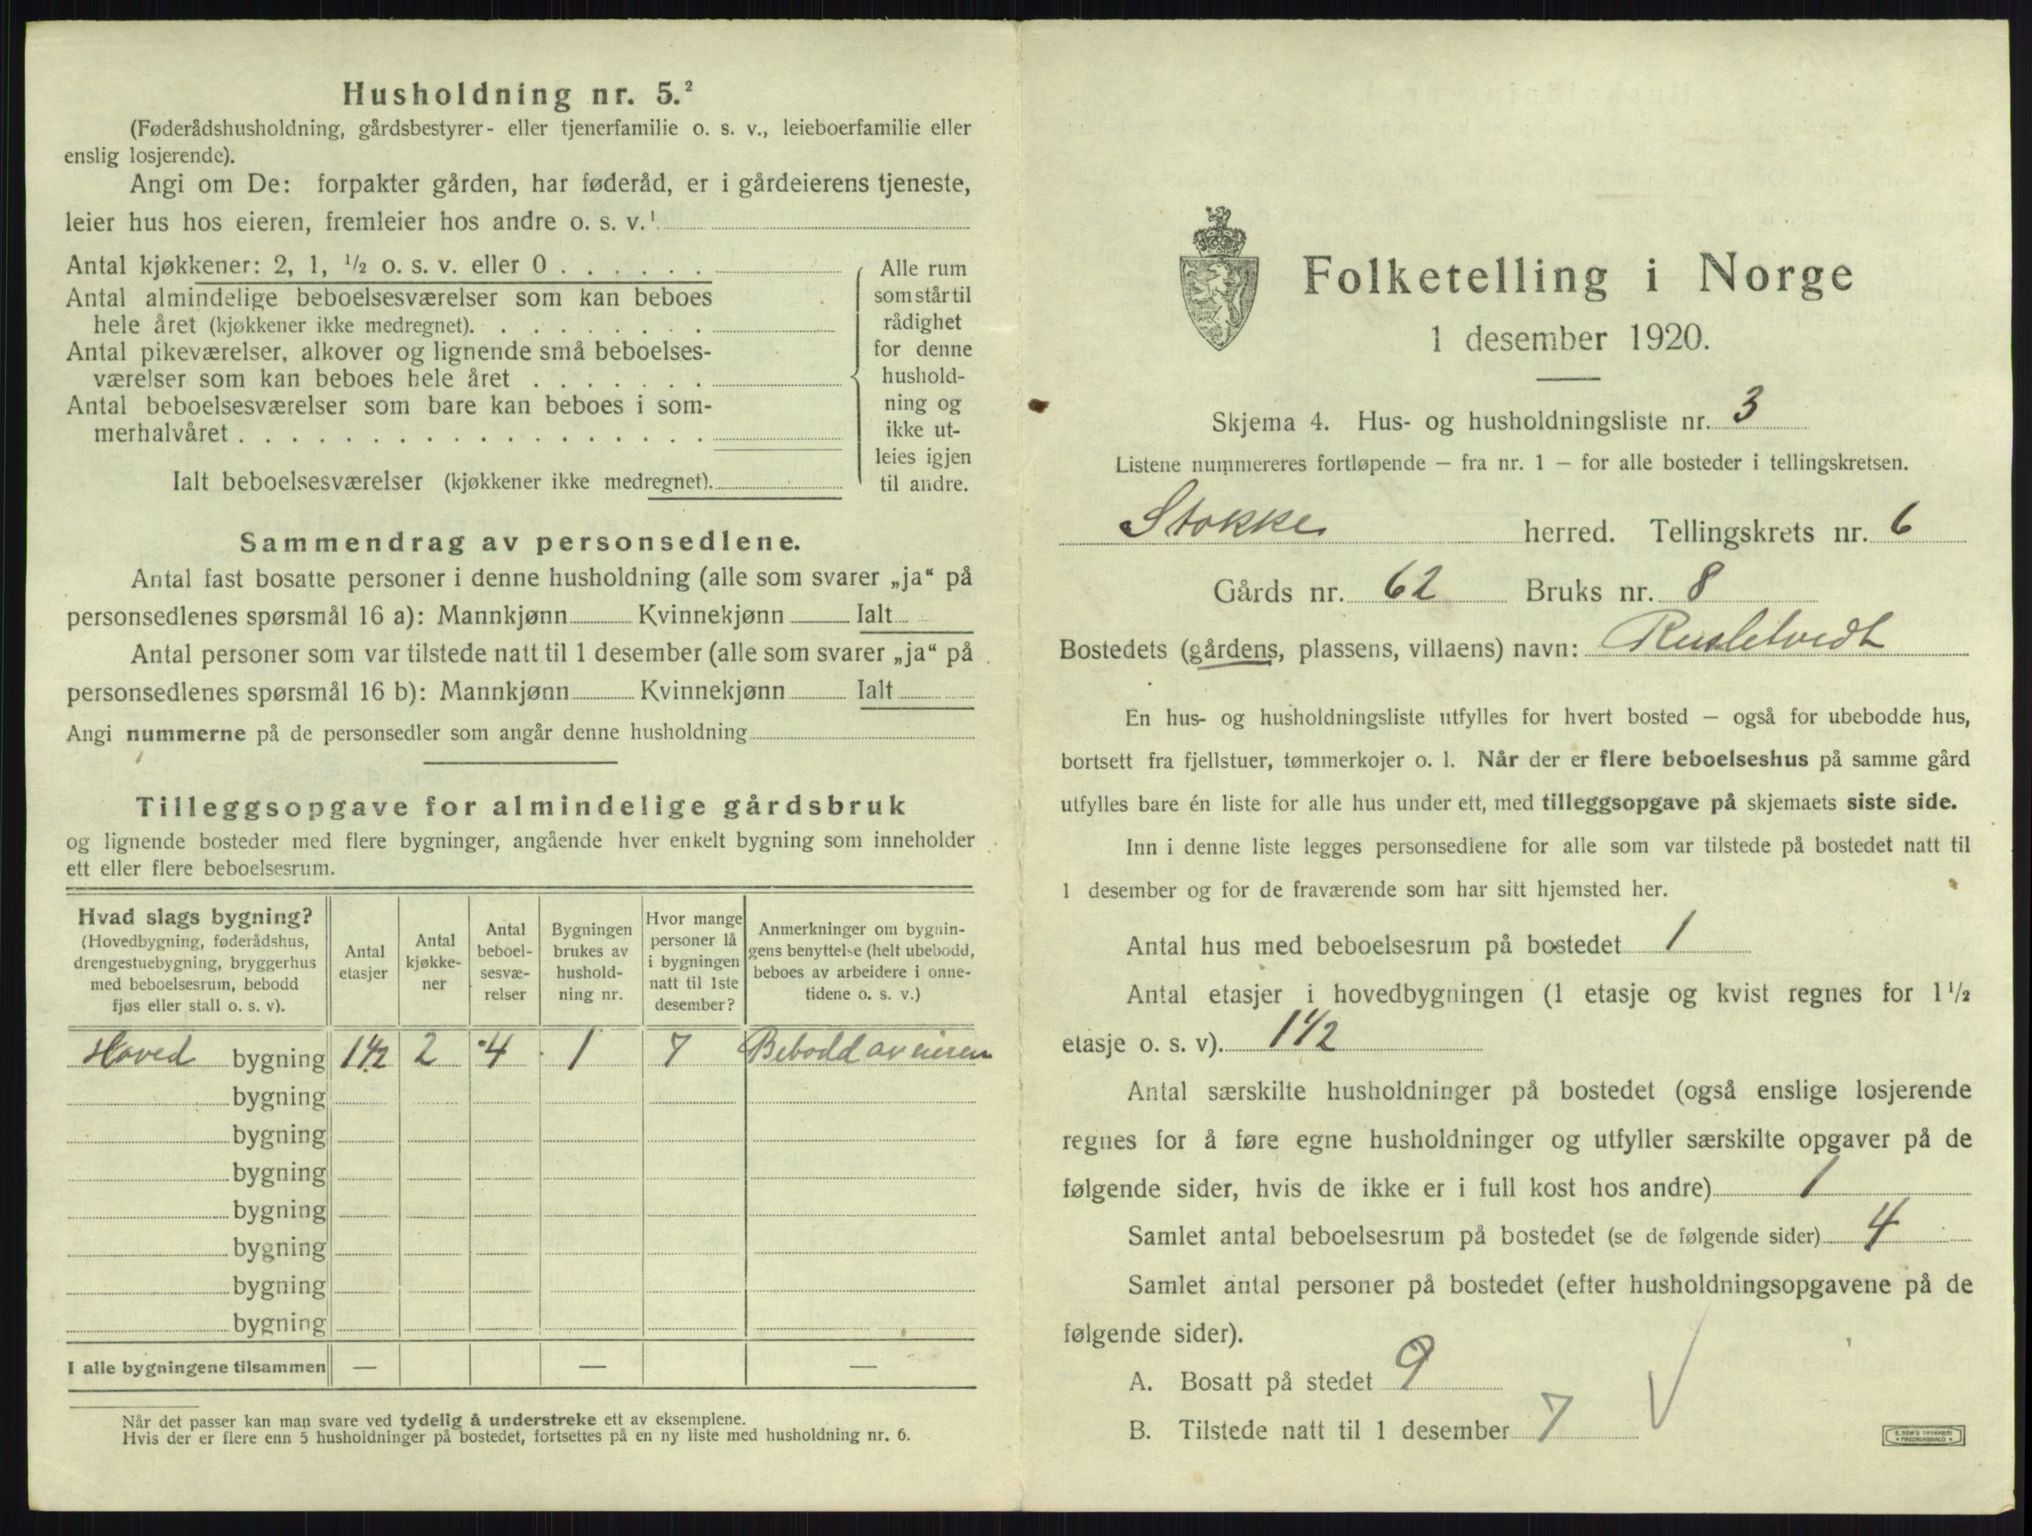 Husholdning nr. 5.²
(Føderådshusholdning, gårdsbestyrer- eller tjenerfamilie o. s. v., leieboerfamilie eller
enslig losjerende).
Angi om De: forpakter gården, har føderåd, er i gårdeierens tjeneste,
leier hus hos eieren, fremleier hos andre o. s. v.¹
Antal kjøkkener: 2, 1, ½ o. s. v. eller 0 . . . . . .
Antal almindelige beboelsesværelser som kan beboes
hele året (kjøkkener ikke medregnet). . . . . . . . .
Antal pikeværelser, alkover og lignende små beboelses-
værelser som kan beboes hele året . . . . . . .
Antal beboelsesværelser som bare kan beboes i som-
merhalvåret . . . . . . . . . . . . . . . . . .
Ialt beboelsesværelser (kjøkkener ikke medregnet).
Alle rum
som står til
rådighet
for denne
hushold-
ning og
ikke ut-
leies igjen
til andre.
Sammendrag av personsedlene.
Antal fast bosatte personer i denne husholdning (alle som svarer „ja“ på
personsedlenes spørsmål 16 a): Mannkjønn Kvinnekjønn Ialt
Antal personer som var tilstede natt til 1 desember (alle som svarer „ja“ på
personsedlenes spørsmål 16 b): Mannkjønn Kvinnekjønn Ialt
Angi nummerne på de personsedler som angår denne husholdning
Tilleggsopgave for almindelige gårdsbruk
og lignende bosteder med flere bygninger, angående hver enkelt bygning som inneholder
ett eller flere beboelsesrum.
Hvad slags bygning?
(Hovedbygning, føderådshus,
drengestuebygning, bryggerhus
med beboelsesrum, bebodd
fjøs eller stall o. s. v).
Antal
etasjer
Antal
kjøkke-
ner
Antal
beboel-
sesvæ-
relser
Bygningen
brukes av
hushold-
ning nr.
Hvor mange
personer lå
i bygningen
natt til 1ste
desember?
Anmerkninger om bygnin-
gens benyttelse (helt ubebodd,
beboes av arbeidere i onne-
tidene o. s. v.)
Hoved bygning 1 1/2 2 4 1 7 Bebodd av eieren
bygning
bygning
bygning
bygning
bygning
bygning
bygning
I alle bygningene tilsammen — — —
Når det passer kan man svare ved tydelig å understreke ett av eksemplene.
Hvis der er flere enn 5 husholdninger på bostedet, fortsettes på en ny liste med husholdning nr. 6.
Folketelling i Norge
1 desember 1920.
Skjema 4. Hus- og husholdningsliste nr. 3
Listene nummereres fortløpende — fra nr. 1 — for alle bosteder i tellingskretsen.
Stokke herred. Tellingskrets nr. 6
Gårds nr. 62 Bruks nr. 8
Bostedets (gårdens, plassens, villaens) navn:
En hus- og husholdningsliste utfylles for hvert bosted — også for ubebodde hus,
bortsett fra fjellstuer, tømmerkojer o. l. Når der er flere beboelseshus på samme gård
utfylles bare én liste for alle hus under ett, med tilleggsopgave på skjemaets siste side.
Inn i denne liste legges personsedlene for alle som var tilstede på bostedet natt til
1 desember og for de fraværende som har sitt hjemsted her.
Antal hus med beboelsesrum på bostedet 1
Antal etasjer i hovedbygningen (1 etasje og kvist regnes for 1½
etasje o. s. v). 1 1/2
Antal særskilte husholdninger på bostedet (også enslige losjerende
regnes for å føre egne husholdninger og utfyller særskilte opgaver på de
følgende sider, hvis de ikke er i full kost hos andre) 1
Samlet antal beboelsesrum på bostedet (se de følgende sider) 4
Samlet antal personer på bostedet (efter husholdningsopgavene på de
følgende sider).
A. Bosatt på stedet 9
B. Tilstede natt til 1 desember 7